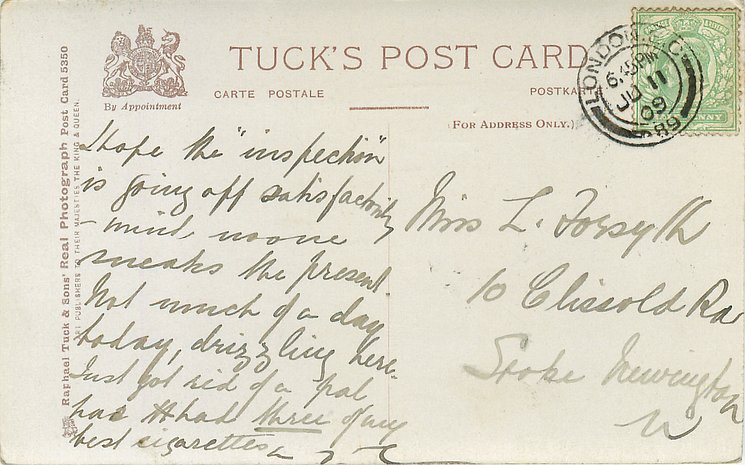 TUCK'S POST CARD
By Appointment
CARTE POSTALE
POSTKARTE
(FOR ADDRESS ONLY.)
Raphael Tuck & Sons' Real Photograph Post Card 5350
ART PUBLISHERS TO THEIR MAJESTIES THE KING & QUEEN.
LONDON E.C.
6.45 PM
JU 11
09
89
I hope the "inspection"
is going off satisfactorily
- mind no one
sneaks the present.
Not much of a day
today, drizzling here.
Just got rid of a pal
has had three of my
best cigarettes
Miss L. Forsyth
10 Clissold Rd
Stoke Newington
N